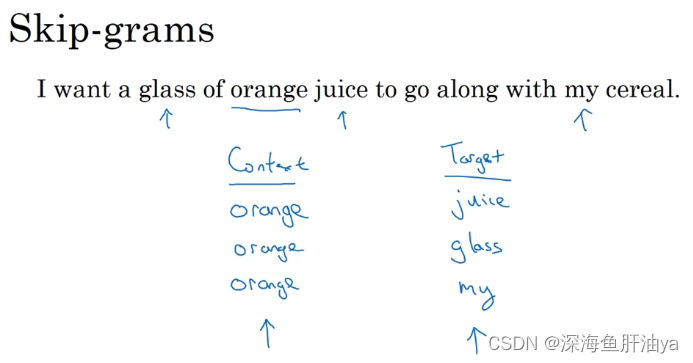 Skip-grams
I want a glass of orange juice to go along with my cereal.
Context Target
orange juice
orange glass
orange my
CSDN @深海鱼肝油ya